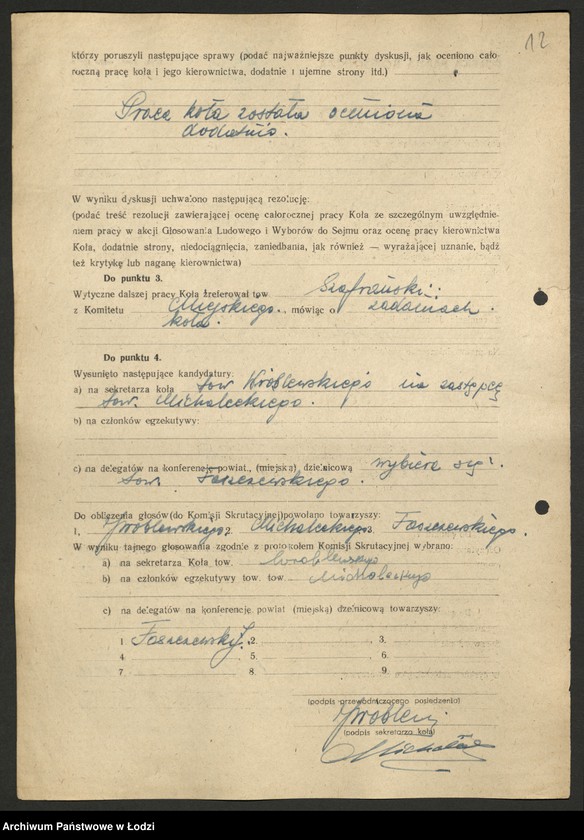 12
którzy poruszyli następujące sprawy (podać najważniejsze punkty dyskusji, jak oceniono cało-
roczną pracę koła i jego kierownictwa, dodatnie i ujemne strony itd.)
Praca koła została oceniona
dodatnio.
W wyniku dyskusji uchwalono następującą rezolucję:
(podać treść rezolucji zawierającej ocenę całorocznej pracy Koła ze szczególnym uwzględnie-
niem pracy w akcji Głosowania Ludowego i Wyborów do Sejmu oraz ocenę pracy kierownictwa
Koła, dodatnie strony, niedociągnięcia, zaniedbania, jak również — wyrażającej uznanie, bądź
też krytykę lub naganę kierownictwa)
Do punktu 3.
Wytyczne dalszej pracy Koła zreferował tow. Szafrański
z Komitetu Miejskiego, mówiąc o zadaniach
koła.
Do punktu 4.
Wysunięto następujące kandydatury:
a) na sekretarza koła tow. Wróblewskiego na zastępcę
tow. Michaleckiego.
b) na członków egzekutywy:
c) na delegatów na konferencję powiat., (miejską) dzielnicową wybiera się:
tow. Faszczewskiego.
Do obliczenia głosów (do Komisji Skrutacyjnej) powołano towarzyszy:
1. Wroblewskiego 2. Michaleckiego 3. Faszczewskiego.
W wyniku tajnego głosowania zgodnie z protokołem Komisji Skrutacyjnej wybrano:
a) na sekretarza Koła tow. Wroblewskiego
b) na członków egzekutywy tow. tow. Michaleckiego
c) na delegatów na konferencję powiat (miejską) dzielnicową towarzyszy:
1 Faszczewski 2. 3.
4. 5. 6.
7. 8. 9.
(podpis przewodniczącego posiedzenia)
(podpis sekretarza koła)
Archiwum Państwowe w Łodzi